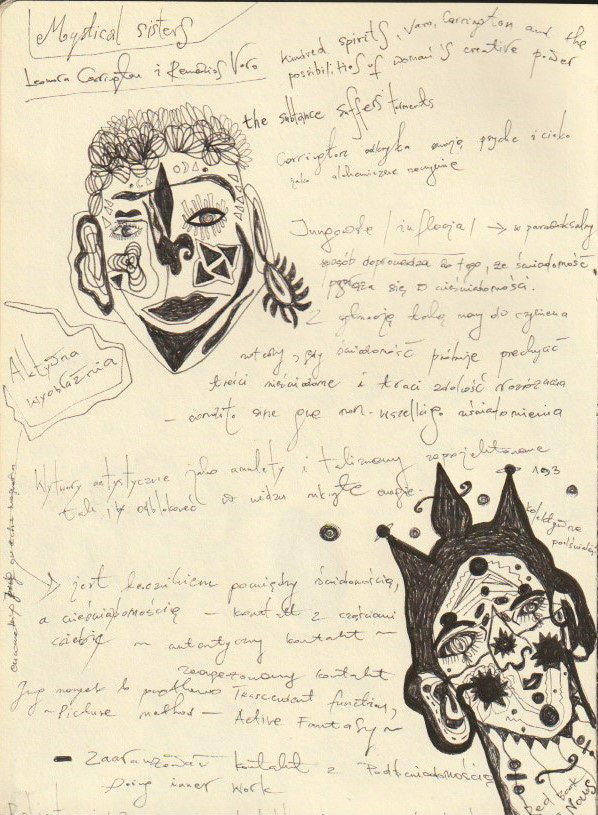 Mystical sisters
Leonora Carrington i Remedios Varo
kindred spirits, Varo, Carrington and the
possibilities of woman's creative power
the substance suffers torments
Carrington odkryła swoją psyche i ciało
jako alchemiczne naczynie
Jungowska /inflacja/ → w paradoksalny
sposób doprowadza do tego, że świadomość
się o nieświadomość.
Z inflacją mamy do czynienia
wtedy, gdy świadomość próbuje przechwycić
treści nieświadome i traci zdolność
Aktywna
wyobraźnia
Wytwory artystyczne jako amulety i talizmany zaprojektowane
tak, by odblokować w widzu ukryte energie.
193
kolektywna
podświad
→ jest łącznikiem pomiędzy świadomością,
a nieświadomością – kontakt z częściami
ciebie ~ autentyczny kontakt ~
kontakt
Jung nazywał to początkowo Transcendent function,
~ Picture method – Active Fantasy ~
– Zaaranżować kontakt z Podświadomością
Doing inner work
Red Book